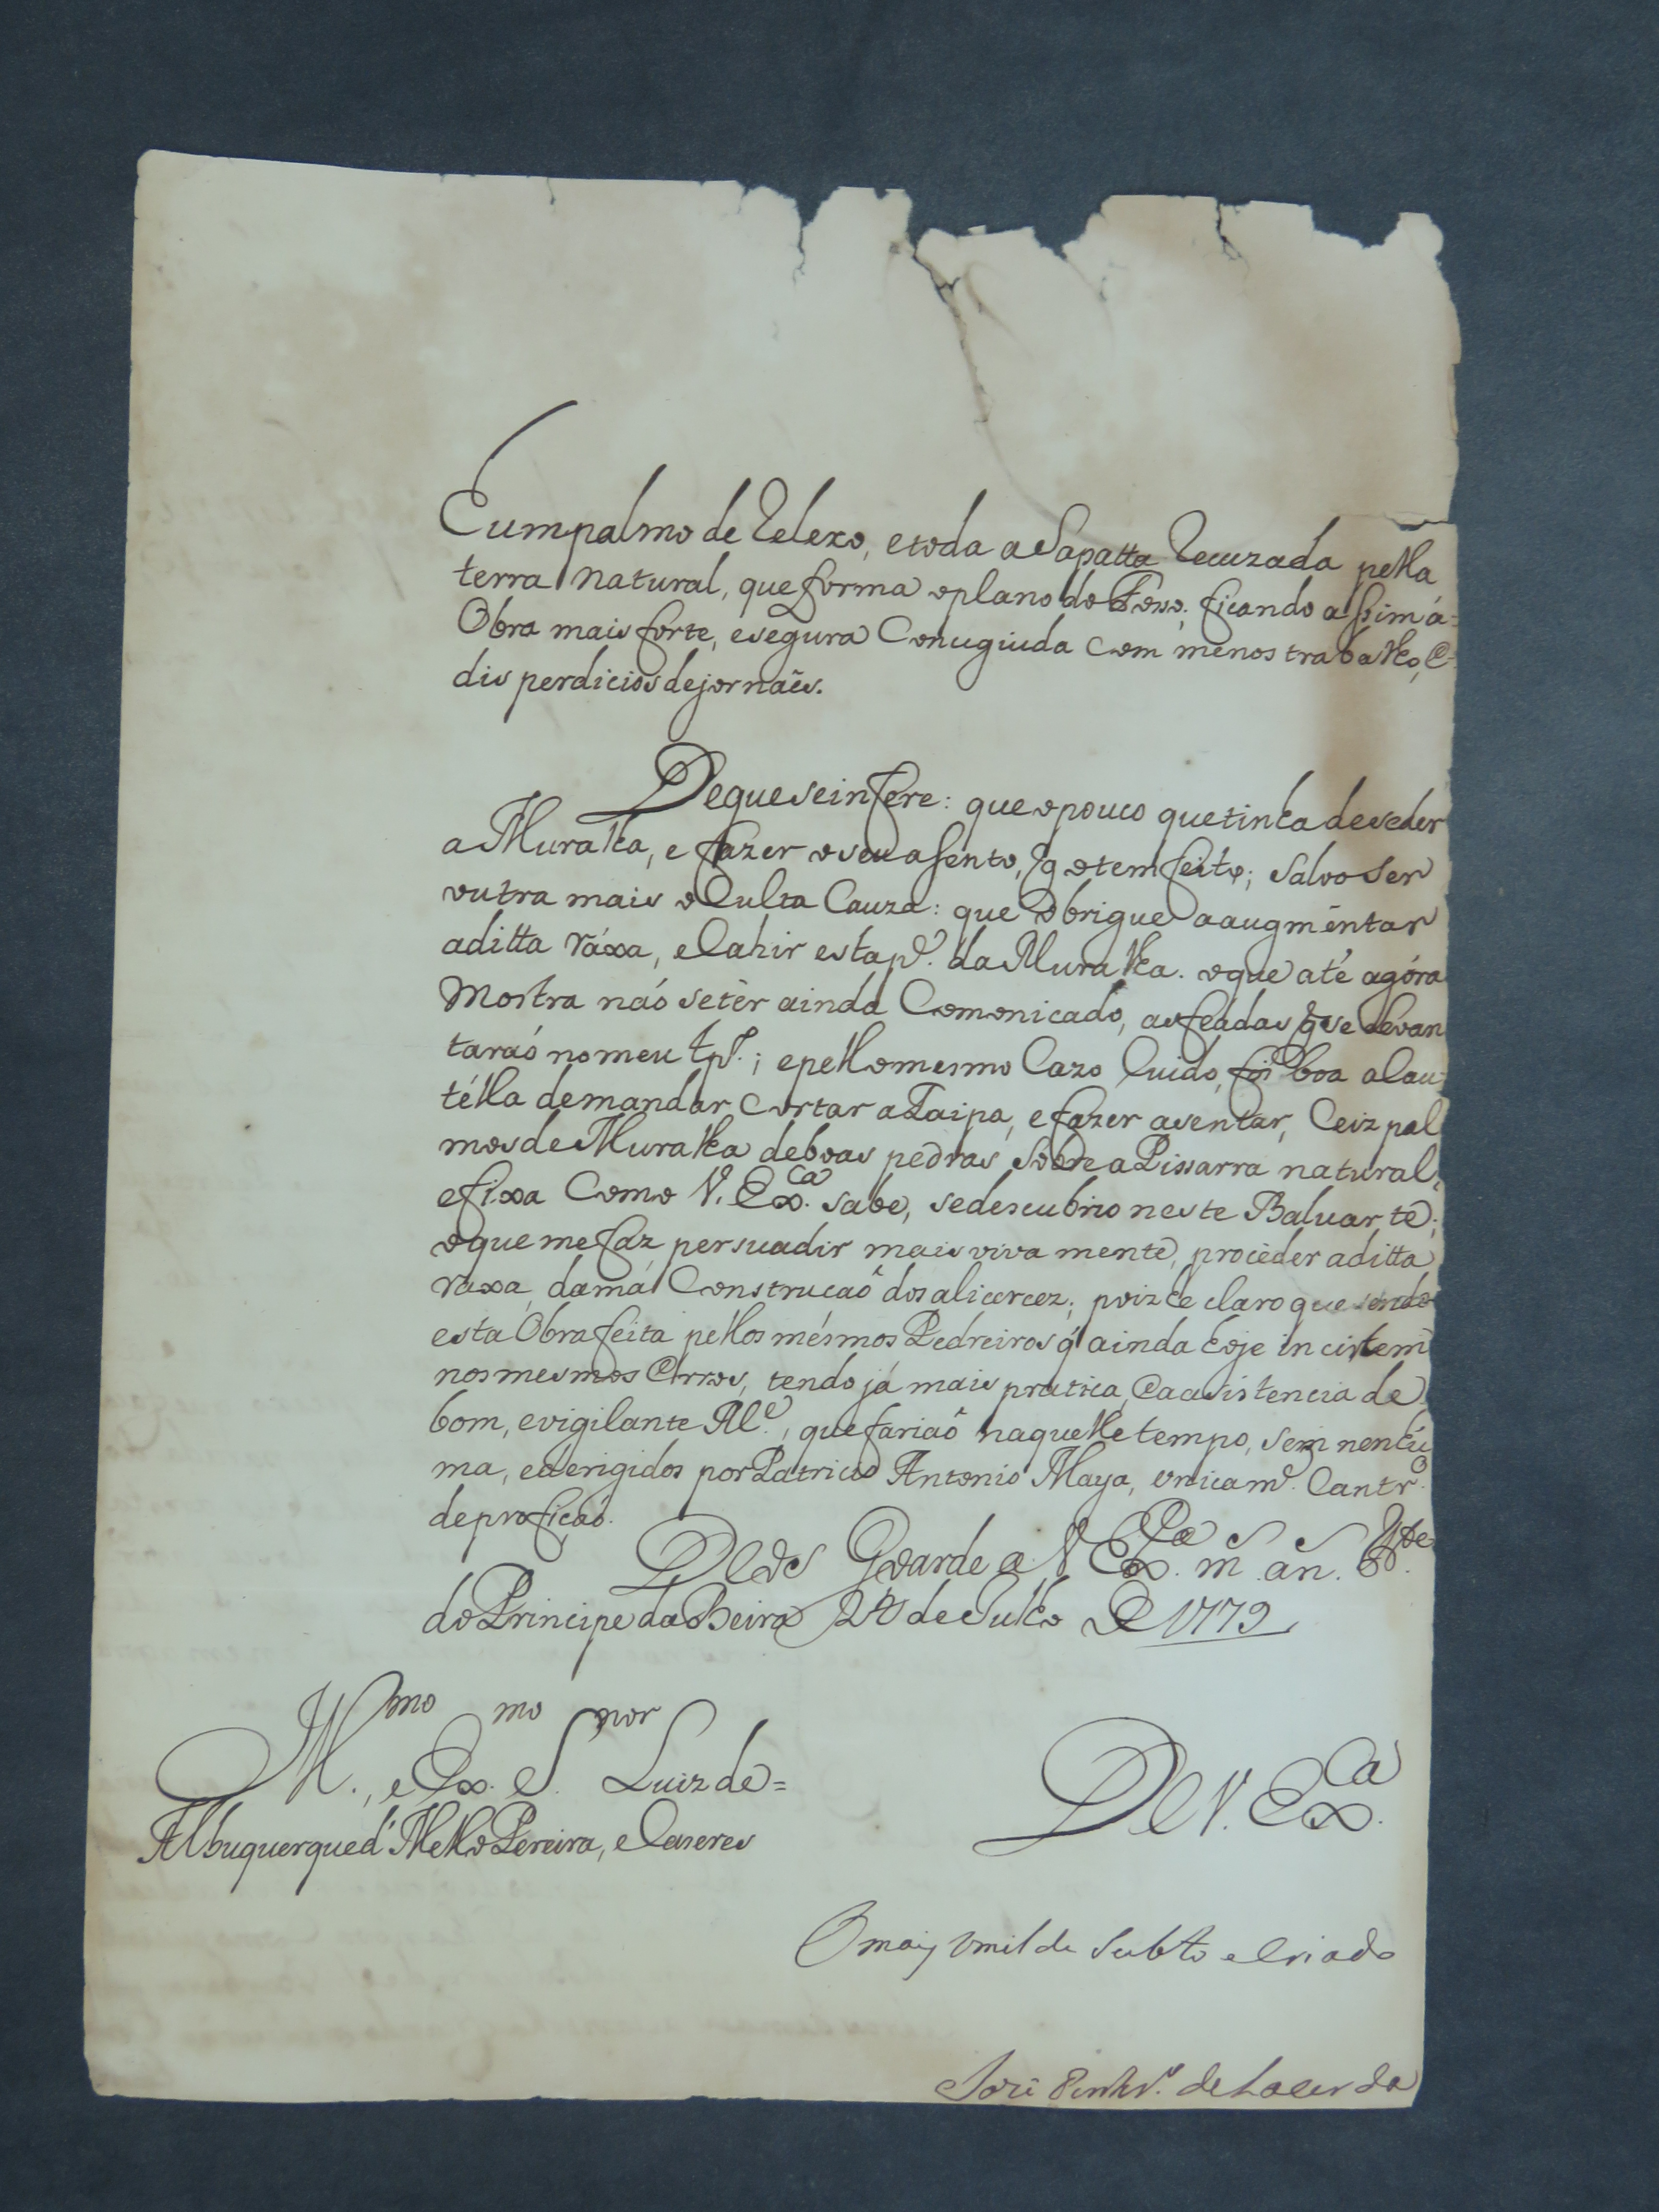 E um palmo de Relexo, e toda a Sapatta Recuzada pella
terra natural, que forma o plano do Foso; ficando assim á=
Obra mais forte, e segura Conugiuda com menos trabalho, e
dis perdicios de jornaes.
De que se infere: que o pouco que tinha de seder
a Muralha, e fazer o seu asento, Já o tem feito; salvo ser
outra mais oCulta Cauza: que Obrigue a augmentar
a ditta ráxa, e Cahir esta p.e da Muralha. o que até agóra
Mostra naó se tér ainda Comonicado, as feadas q se Levan
taraó no meu tp.º; e pello mesmo Cazo Cuido, foi boa a Cau
télla de mandar Cortar a Taipa, e fazer asentar, Ceiz pal
mos de Muralha de boas pedras sobre a Pissarra natural,
e fixa Como V. Ex.ca sabe, se descubrio neste Baluarte;
o que me faz persuadir mais viva mente, proceder a ditta
raxa, da má Construcaõ dos alicercez; poiz he claro que sendo
esta Obra feita pellos mésmos Pedreiros q' ainda hoje incistem
nos mesmos Erros, tendo já mais pratica, e a asistencia de
bom, e vigilante M.e, que fariaõ naquelle tempo, sem nenhú
ma, e derigidos por Patricio Antonio Maya, unicam.e Cantr.o
de proficaó.
Deos Goarde a V Ex.ca m. an. F.te
do Principe da Beira 24 de Julho De 1779
Ill.mo, e Ex.mo S.nor Luiz de=
Albuquerque d' Mello Pereira, e Caseres
De V. Ex.ca
O mais Umilde Subto e Criado
José Pinhr.o de Lacerda